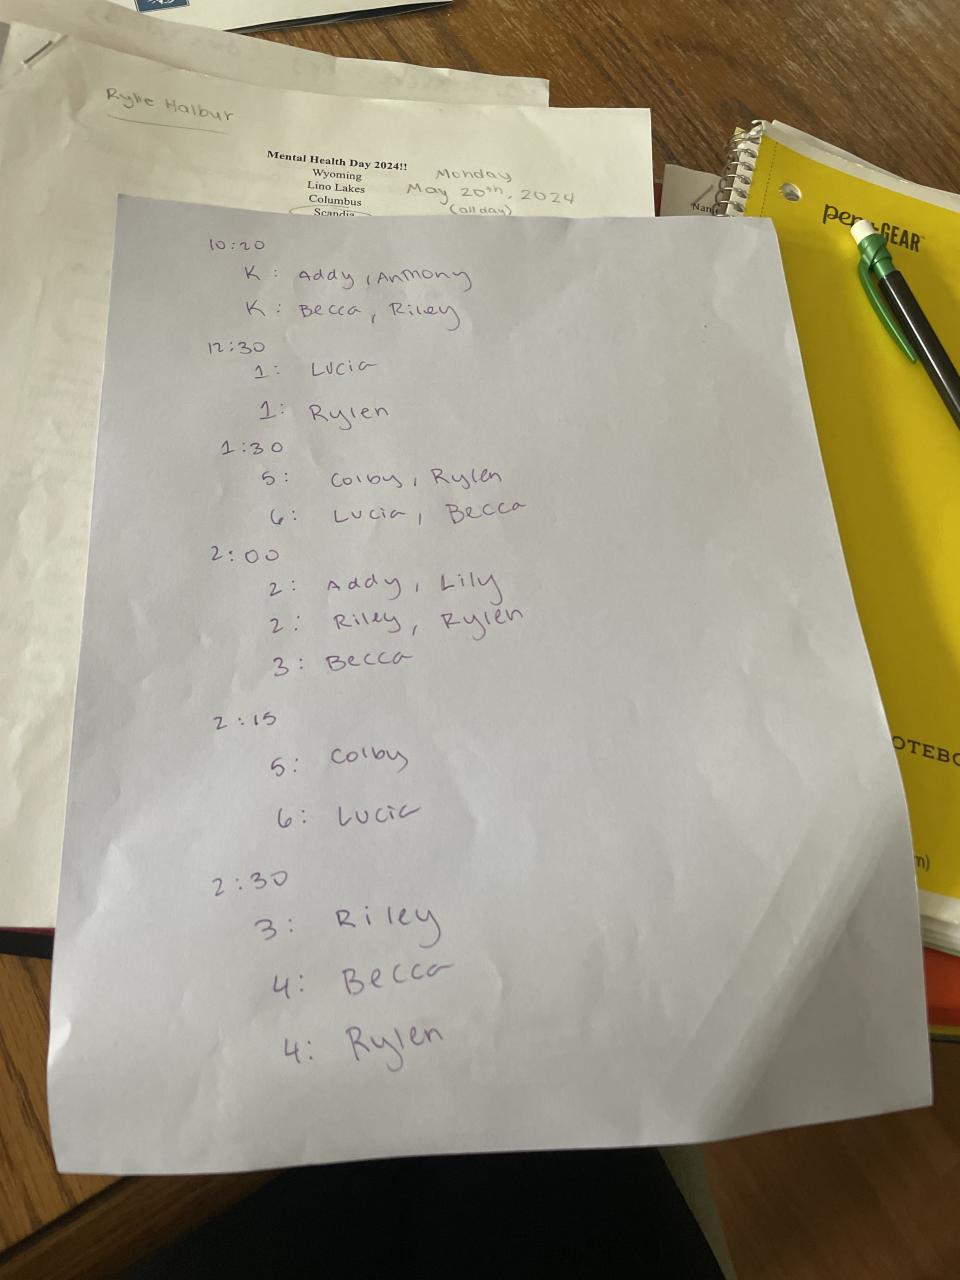 Rylie Halbur
Mental Health Day 2024!!
Wyoming
Lino Lakes
Columbus
Scandia
Monday
May 20th, 2024
(all day)
10:20
K: Addy, Anthony
K: Becca, Riley
12:30
1: Lucia
1: Rylen
1:30
5: Colby, Rylen
6: Lucia, Becca
2:00
2: Addy, Lily
2: Riley, Rylen
3: Becca
2:15
5: Colby
6: Lucia
2:30
3: Riley
4: Becca
4: Rylen
pen+GEAR